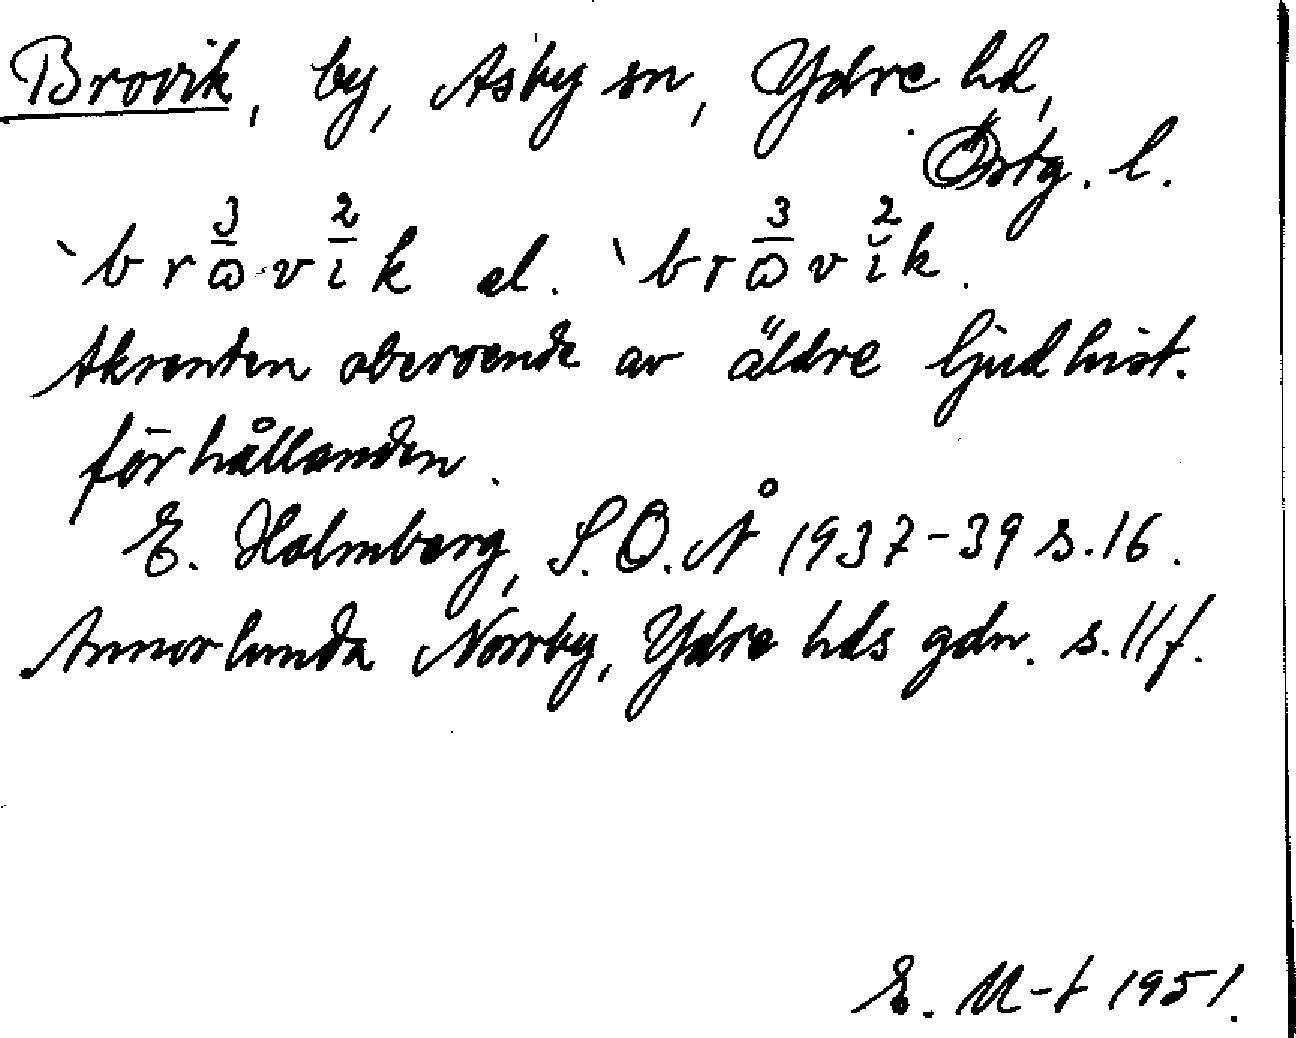 Brovik, by, Asby sn, Ydre hd,
Östg. l.
`brɷ̄³vī²k el. `brɷ̄³vĭ²k.
Akcenten oberoende av äldre ljudhist.
förhållanden.
E. Holmberg, S.O.Å 1937-39 s.16.
Annorlunda Norrby, Ydre hds gdn. s.11f.
E. M-t 1951.